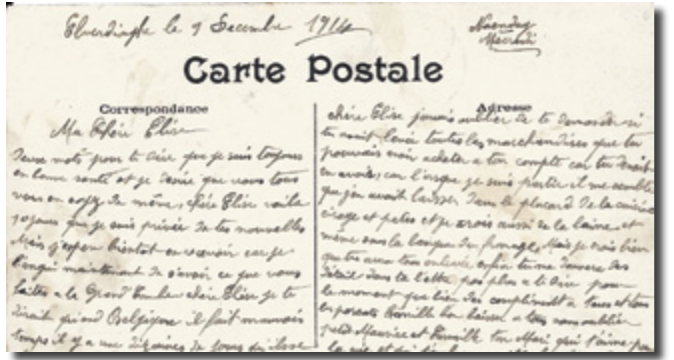 Elverdinghe le 9 Decembre 1914
Mecredi
Carte Postale
Correspondance
Adresse
Ma Chére Elise
Deux mots pour te dire que je suis toujours
en bonne santé et je désire que vous tous
vous en soyez de même, chére Elise voila
jours que je suis privée de tes nouvelles
Mais j'espere bientot en recevoir car je
maintenant de savoir ce que vous
faites a la Grand chére Elise je te
dirait quand Belgique il fait mauvais
temps il y a une dizaines de jours
chére Elise jamais oublier de te demander si
tu avait toutes les marchandises que tu
pouvais avoir acheter a ton compte car tu devait
en avoir, car lorsque je suis partie il me semble
que j'en avait laisser dans le placard de la cuisine
cirage et pates et je crois aussi de la laine et
même sous la banque du fromage Mais je crois bien
que tu aura enfin tu me donnera des
détail dans ta lettre pas plus a te dire pour
le moment que bien des compliment a tous et tous
les parents Famille bon baiser a tous sans oublier
petit Maurice et Famille ton Mari qui t'aime pour
la vie